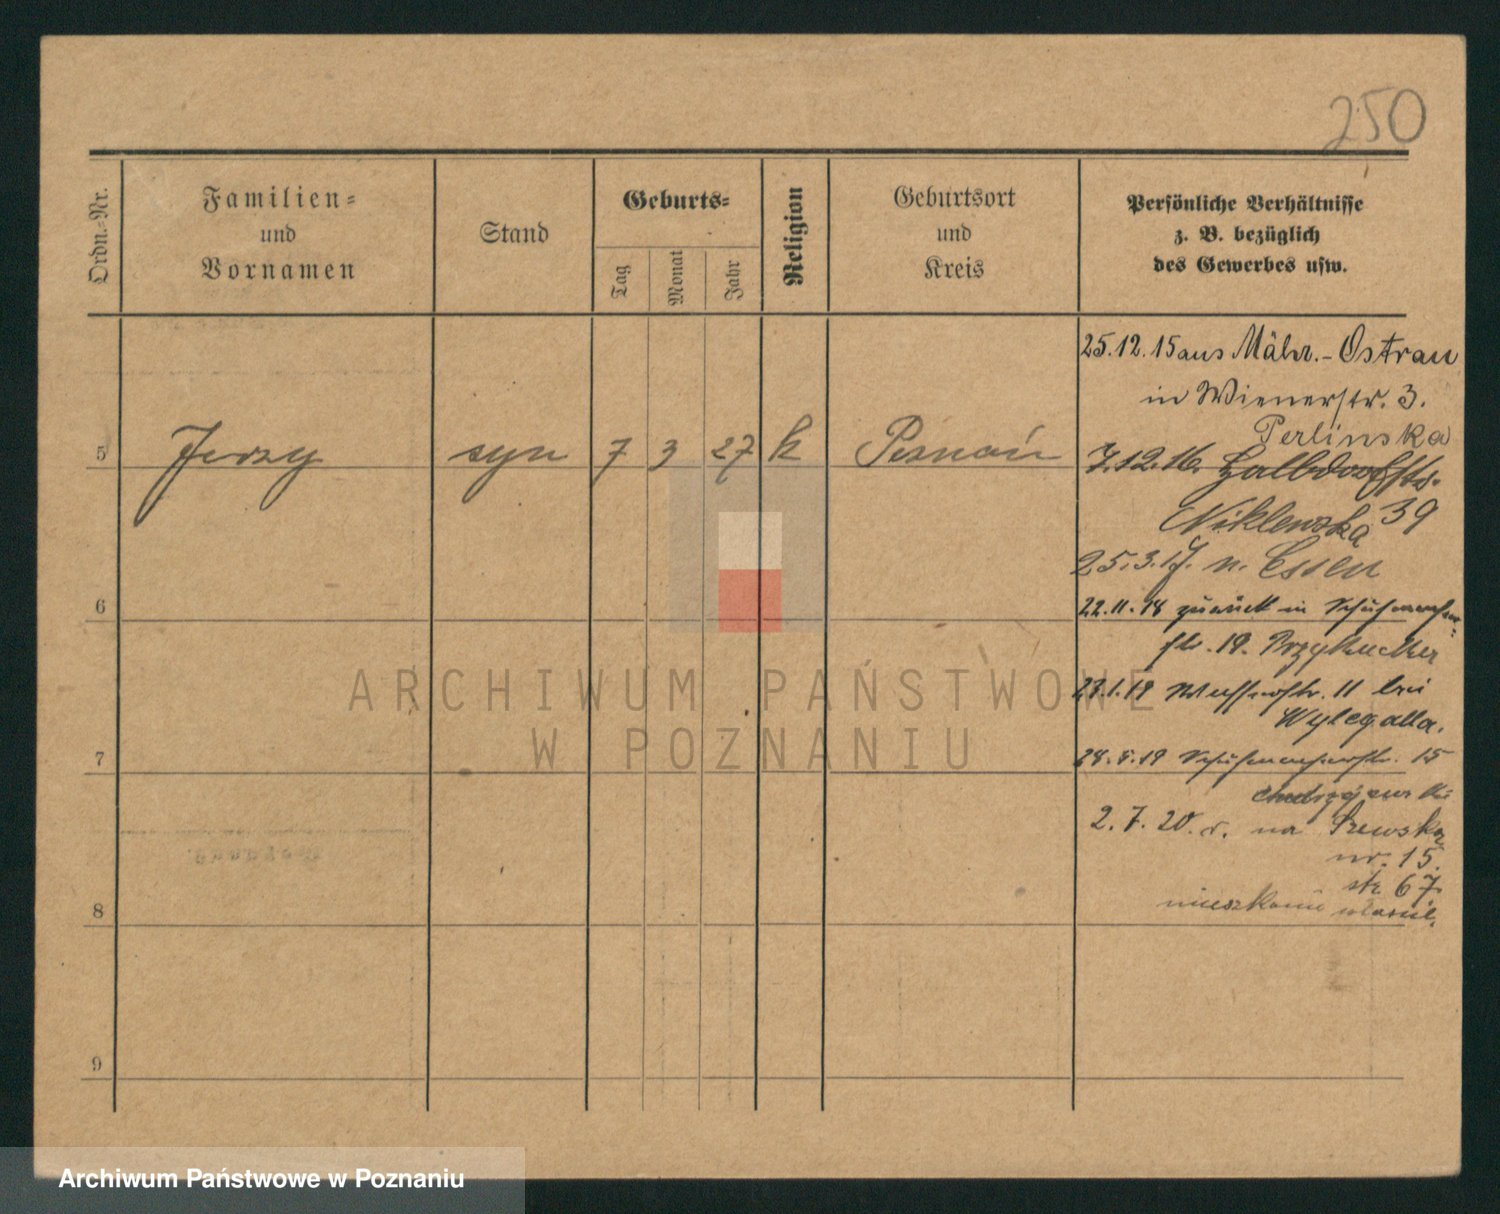 250
Ordn.-Nr.
Familien-
und
Vornamen
Stand
Geburts-
Tag
Monat
Jahr
Religion
Geburtsort
und
Kreis
Persönliche Verhältnisse
z. B. bezüglich
des Gewerbes usw.
25.12.15 aus Mähr.-Ostrau
in Wienerstr. 3.
Perlinska
5 Jerzy syn 7 3 27 k Poznań
7.12.16. Halbdorfstr.
39
Niklewska
25.3.17. n. Essen
6
22.11.18 zurück in Schuhmacher-
str. 19. Przykucker
29.1.19 Wasserstr. 11 bei
Wylegalla.
7
28.5.19 Schuhmacherstr. 15
2.7.20. r. na Szewska
nr. 15.
str 67
mieszkanie własne.
8
9
ARCHIWUM PAŃSTWOWE
W POZNANIU
Archiwum Państwowe w Poznaniu